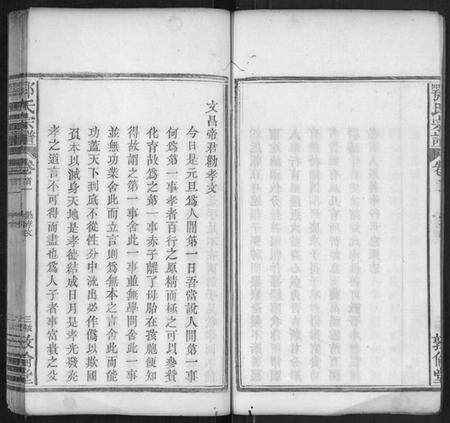 文昌帝君勸孝文
今日是元旦為人間第一日吾當說人間第一事
何為第一事孝者百行之原精而極之可以參贊
化育故為之第一事赤子離了母胎在孩抱便知
得故謂之第一事舍此一事並無學問舍此一事
並無功業舍此而立言則為無本之言舍此而能
功蓋天下到底不從性分中流出必作偽以欺國
本以減身天地是孝德結成日月是孝光發亮
孝之道言不可得而盡也為人子者事富貴之父
氏宗譜
卷首
勸孝文
三
敦倫堂
氏宗譜
卷首
敦倫堂